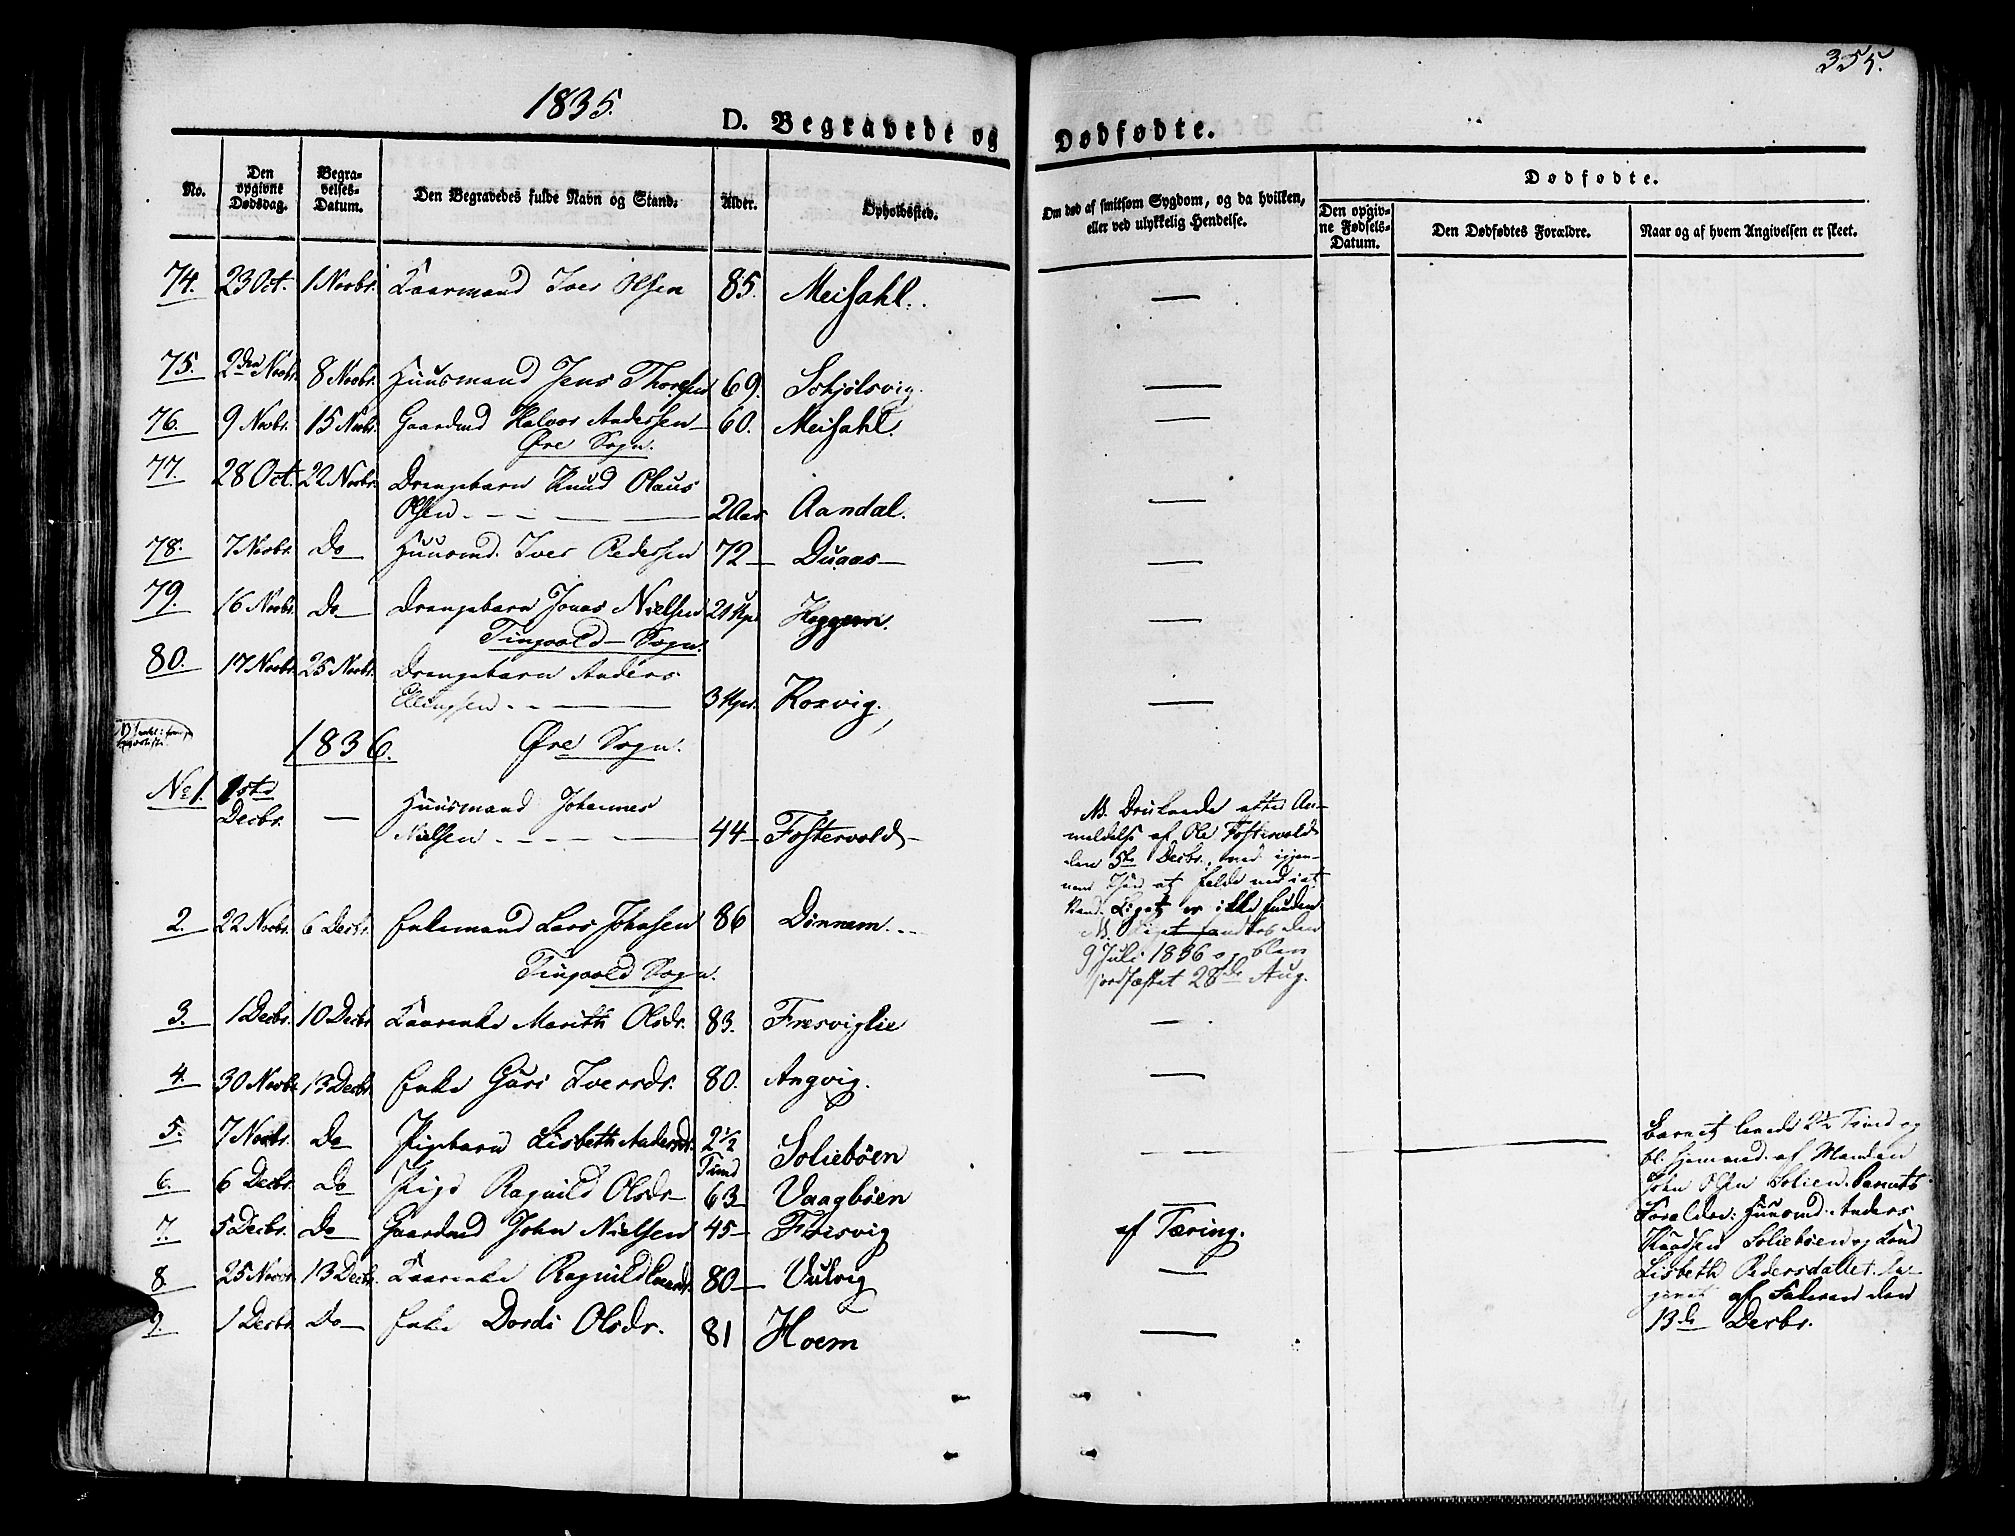 355.
1835.
D. Begravede og Dødfødte.
No.
Den opgivne Dødsdag.
Begravelses-Datum.
Den Begravedes fulde Navn og Stand.
Alder.
Opholdssted.
Om død af smitsom Sygdom, og da hvilken, eller ved ulykkelig Hendelse.
Dødfødte.
Den opgivne Fødsels-Datum.
Den Dødfødtes Forældre.
Naar og af hvem Angivelsen er skeet.
74. 23 Oct. 1 Novbr. Kaarmand Iver Olsen 85. Meisahl. —
75. 2den Novbr. 8 Novbr. Huusmand Jens Thoresen 69. Schjølsvig. —
76. 9 Novbr. 15 Novbr. Gaardmd Halvor Andersen 60. Meisahl. —
Øre Sogn.
77. 28 Oct. 22 Novbr. Drengebarn Knud Olaus
Olsen 2 Aar Aandal. —
78. 7 Novbr. Do Huusmd. Iver Pedersen 72 — Duaas —
79. 16 Novbr. Do Drengebarn Jonas Nielsen 21 Ugr Heggem. —
Tingvold Sogn.
80. 17 Novbr. 25 Novbr. Drengebarn Anders
Ellingsen 3 Ugr. Koxvig. —
1836. Øre Sogn.
No 1. 1ste
Decbr. — Huusmand Johannes
Nielsen 44 — Fostervold —
NB. Druknede efter An-
meldelse af Ole Fostervold
den 5te Decbr. ved igjen-
nem Isen at falde ned i et
Vand. Liget er ikke funden
NB. Liget fandtes den
9 Juli 1836 og blev
jordfæstet 28de Aug.
2. 22 Novbr. 6 Decbr. Enkemand Lars Johnsen 86 Dønnem.
Tingvold Sogn.
3. 1 Decbr. 10 Decbr. Kaarenke Marith Olsdr. 83. Fresviglie —
4. 30 Novbr. 13 Decbr. Enke Guri Iversdr. 80. Angvig. —
5. 7 Novbr. Do Pigebarn Lisbeth Andersdr. 2½
Timd Soliebøen —
6. 6 Decbr. Do Pige Ragnild Olsdr 63 Vaagbøen —
7. 5 Decbr. Do Gaardmd John Nielsen 45 — Freisvig af Tæring.
8. 25 Novbr. 13 Decbr. Kaarenke Ragnild 80 — Vulvig —
9. 1 Decbr. Do — Enke Dordi Olsdr. 81 Hoem —
Barnet levede 2½ Timd og
bl. hjemmed. af Manden
John Olsen Solien. Barnets
Forældre: Huusmd. Anders
Knudsen Soliebøen og Kone
Lisbeth Pedersdatter. An-
givet af Faderen den
13de Decbr.